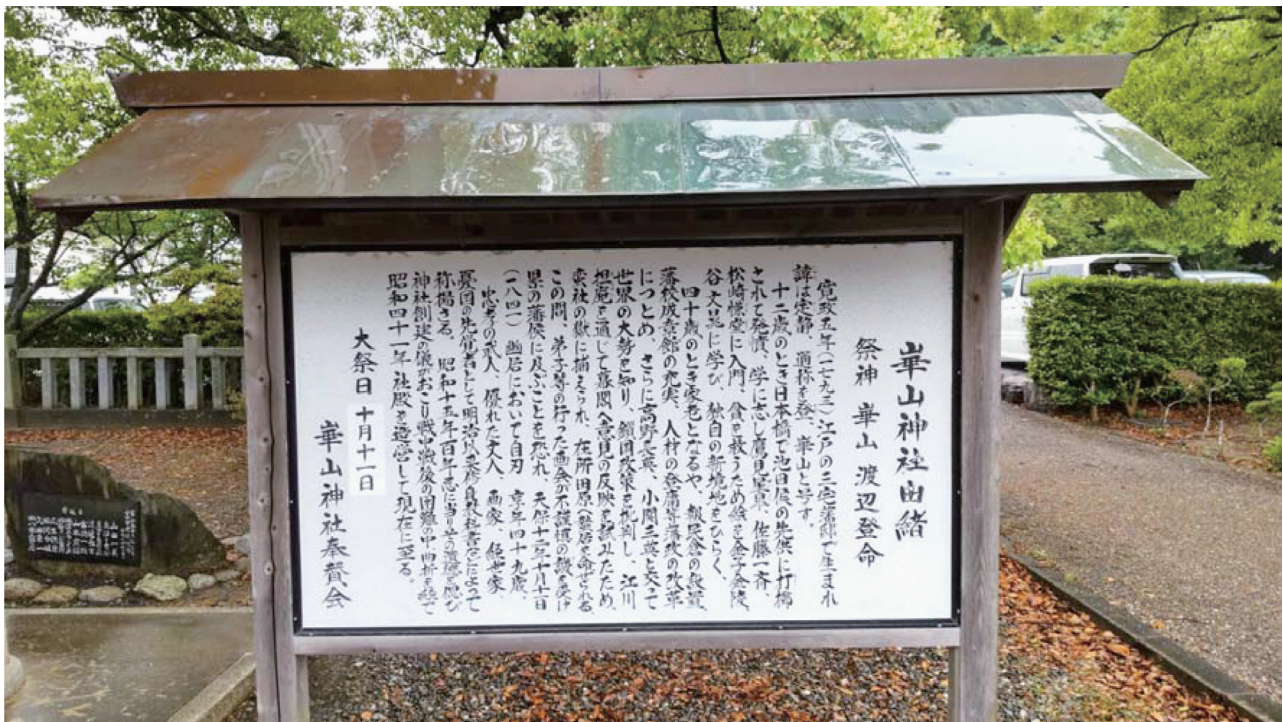 崋山神社由緒
祭神 崋山 渡辺登命
寛政五年(一七九三)江戸の三宅藩邸で生まれ
諱は定静、通称を登、崋山と号す。
十二歳のとき日本橋で池田侯の先供に打擲
されて発憤、学に志し鷹見星皐、佐藤一斉、
松崎慊堂に入門、貧を救うため絵を金子金陵、
谷文晁に学び、独自の新境地をひらく、
四十歳のとき家老となるや、報民倉の設置、
藩校成章館の充実、人材の登庸等藩政の改革
につとめ、さらに高野長英、小関三英と交って
世界の大勢を知り、鎖国政策を批判し、江川
担庵を通じて幕閣へ意見の反映を試みたため、
蛮社の獄に捕えられ、在所田原へ蟄居を命ぜられる、
この間、弟子等の行った画会が不謹慎の譏を受け
累の藩侯に及ぶことを恐れ、天保十二年十月十一日
(一八四一)幽居において自刃 享年四十九歳、
忠孝の武人、優れた文人、画家、経世家、
憂国の先覚者として明治以来修身教科書などによって
称揚さる。昭和十五年百年忌に当り
神社創建の儀がおこり戦中戦後の困難の中曲折を経て
昭和四十一年社殿を造営して現在に至る。
大祭日 十月十一日
崋山神社奉賛会